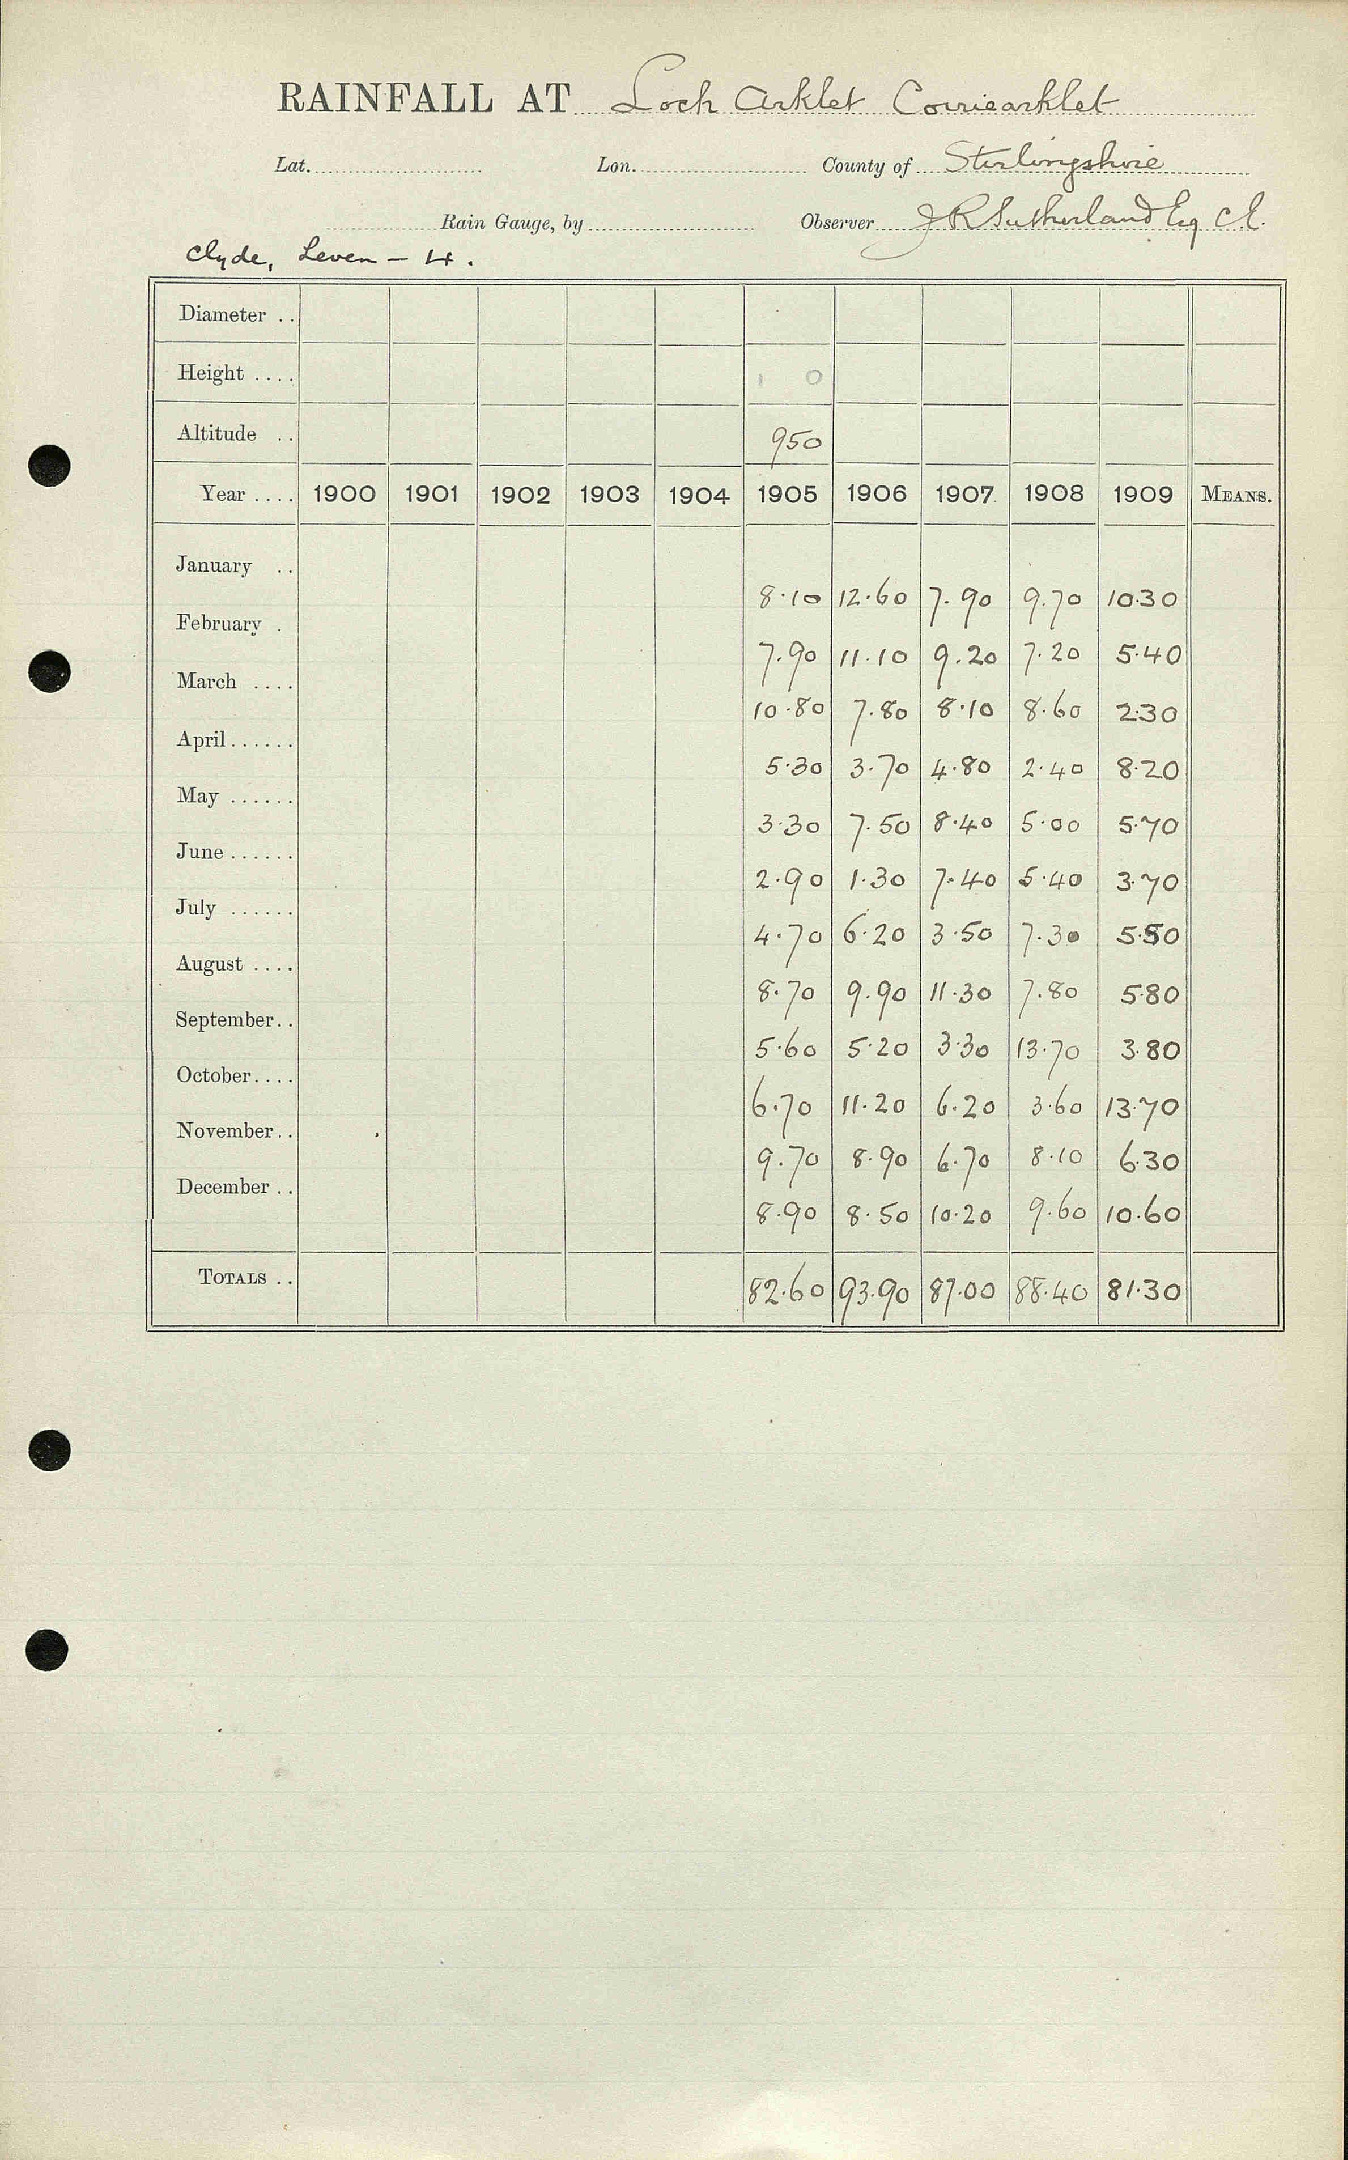 RAINFALL AT Loch Arklet Corriearklet
Lat. Lon. County of Stirlingshire
Rain Gauge, by Observer J R Sutherland Esq C.E.
Clyde, Leven - 4.
Diameter ..
Height .... 1 0
Altitude .. 950
Year .... 1900 1901 1902 1903 1904 1905 1906 1907 1908 1909 MEANS.
January ..
8.10 12.60 7.90 9.70 10.30
February .
7.90 11.10 9.20 7.20 5.40
March ....
10.80 7.80 8.10 8.60 2.30
April ......
5.30 3.70 4.80 2.40 8.20
May ......
3.30 7.50 8.40 5.00 5.70
June ......
2.90 1.30 7.40 5.40 3.70
July ......
4.70 6.20 3.50 7.30 5.50
August ....
8.70 9.90 11.30 7.80 5.80
September..
5.60 5.20 3.30 13.70 3.80
October....
6.70 11.20 6.20 3.60 13.70
November..
9.70 8.90 6.70 8.10 6.30
December ..
8.90 8.50 10.20 9.60 10.60
TOTALS .. 82.60 93.90 87.00 88.40 81.30